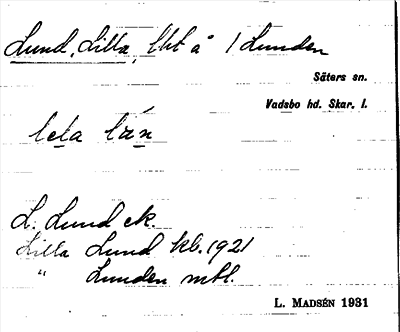 Lund, Lilla, 1/1 å 1 Lunden
Säters sn.
Vadsbo hd. Skar. l.
leta lán
L. Lund ek.
Lilla Lund kb. 1921
" Lunden mtl.
L. MADSÉN 1931